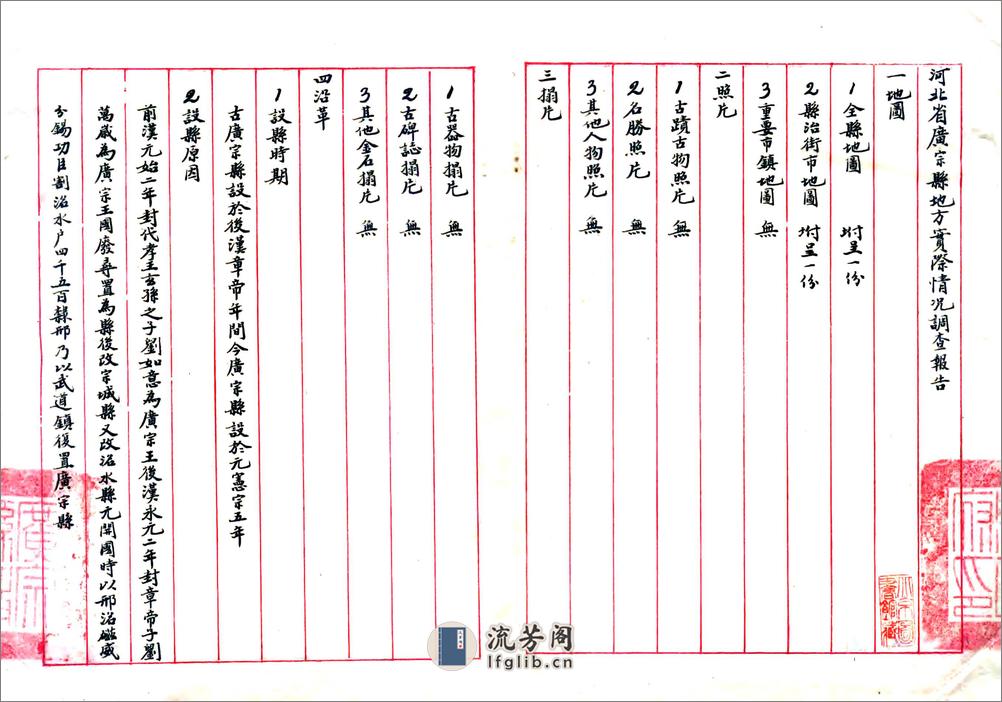 河北省廣宗縣地方實際情況調查報告
一地圖
1全縣地圖 坿呈一份
2縣治街市地圖 坿呈一份
3重要市鎮地圖 無
二照片
1古蹟古物照片 無
2名勝照片 無
3其他人物照片 無
三搨片
1古器物搨片 無
2古碑誌搨片 無
3其他金石搨片 無
四沿革
1設縣時期
古廣宗縣設於後漢章帝年間今廣宗縣設於元憲宗五年
2設縣原因
前漢元始二年封代孝王玄孫之子劉如意為廣宗王後漢永元二年封章帝子劉
萬歲為廣宗王國廢尋置為縣後改宗城縣又改洺水縣元開國時以邢洺磁威
分錫功臣割洺水户四千五百隸邢乃以武道鎮復置廣宗縣
流芳阁
lfglib.cn